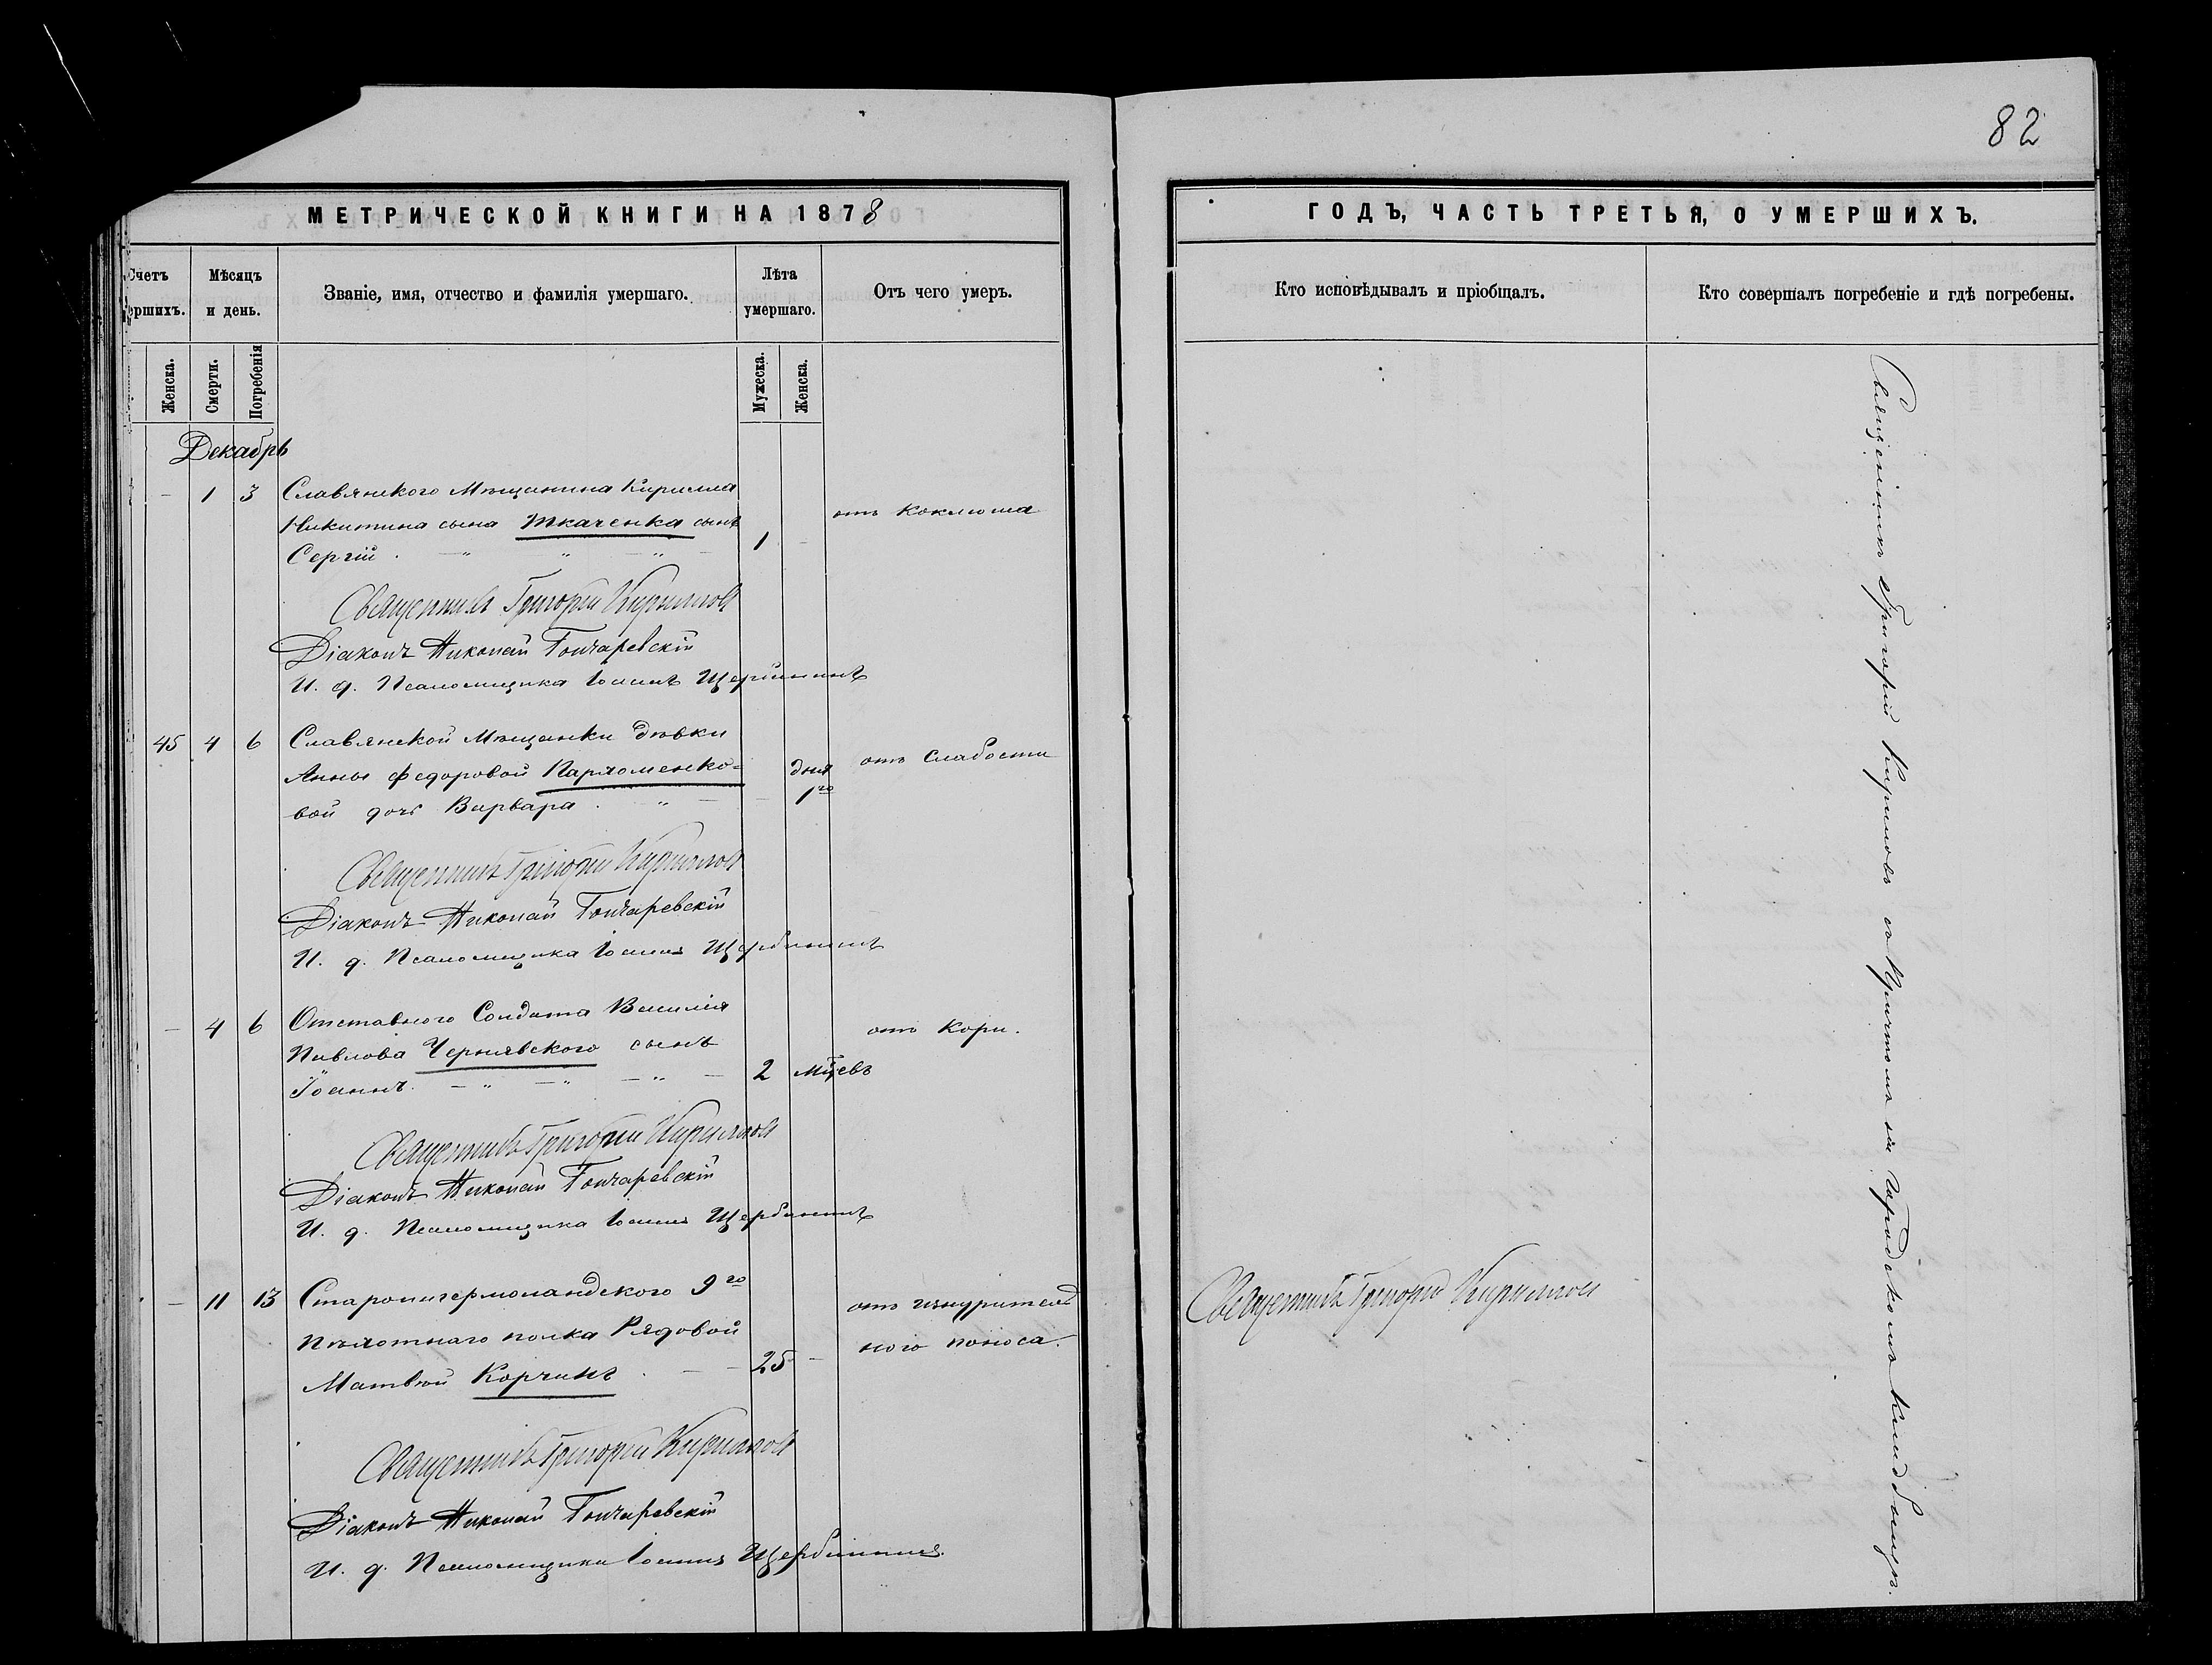 82
МЕТРИЧЕСКОЙ КНИГИ НА 1878
Счетъ
ершихъ.
Мѣсяцъ
и день.
Званіе, имя, отчество и фамилія умершаго.
Лѣта
умершаго.
Отъ чего умеръ.
Женска.
Смерти.
Погребенія
Мужеска.
Женска.
Декабрь
- 1 3 Славянского Мѣщанина Кирилла
Никитина сына Ткаченка сынъ
Сергій. 1 -
отъ Коклюша
Священникъ Григорій Кирилловъ
Діаконъ Николай Гончаревскій
И. д. Псаломщика Іоаннъ Щербининъ
45 4 6 Славянской Мѣщанки дѣвки
Анны Федоровой Пархоменко=
вой дочь Варвара. - дня 1го
отъ Слабости
Священникъ Григорій Кирилловъ
Діаконъ Николай Гончаревскій
И. д. Псаломщика Іоаннъ Щербининъ
- 4 6 Отставного Солдата Василія
Павлова Чернявского сынъ
Іоаннъ. 2 мцевъ
отъ Кори.
Священникъ Григорій Кирилловъ
Діаконъ Николай Гончаревскій
И. д. Псаломщика Іоаннъ Щербининъ
- 11 13 Староингермоландского 9го
Пѣхотнаго полка Рядовой
Матвѣй Корчинъ. 25 -
отъ изнурител
ного поноса.
Священникъ Григорій Кирилловъ
Діаконъ Николай Гончаревскій
И. д. Псаломщика Іоаннъ Щербининъ.
ГОДЪ, ЧАСТЬ ТРЕТЬЯ, О УМЕРШИХЪ.
Кто исповѣдывалъ и пріобщалъ.
Кто совершалъ погребеніе и гдѣ погребены.
Священникъ Григорій Кирилловъ
Священникъ Григорій Кирилловъ съ Причтомъ на Городскомъ Кладбищѣ.